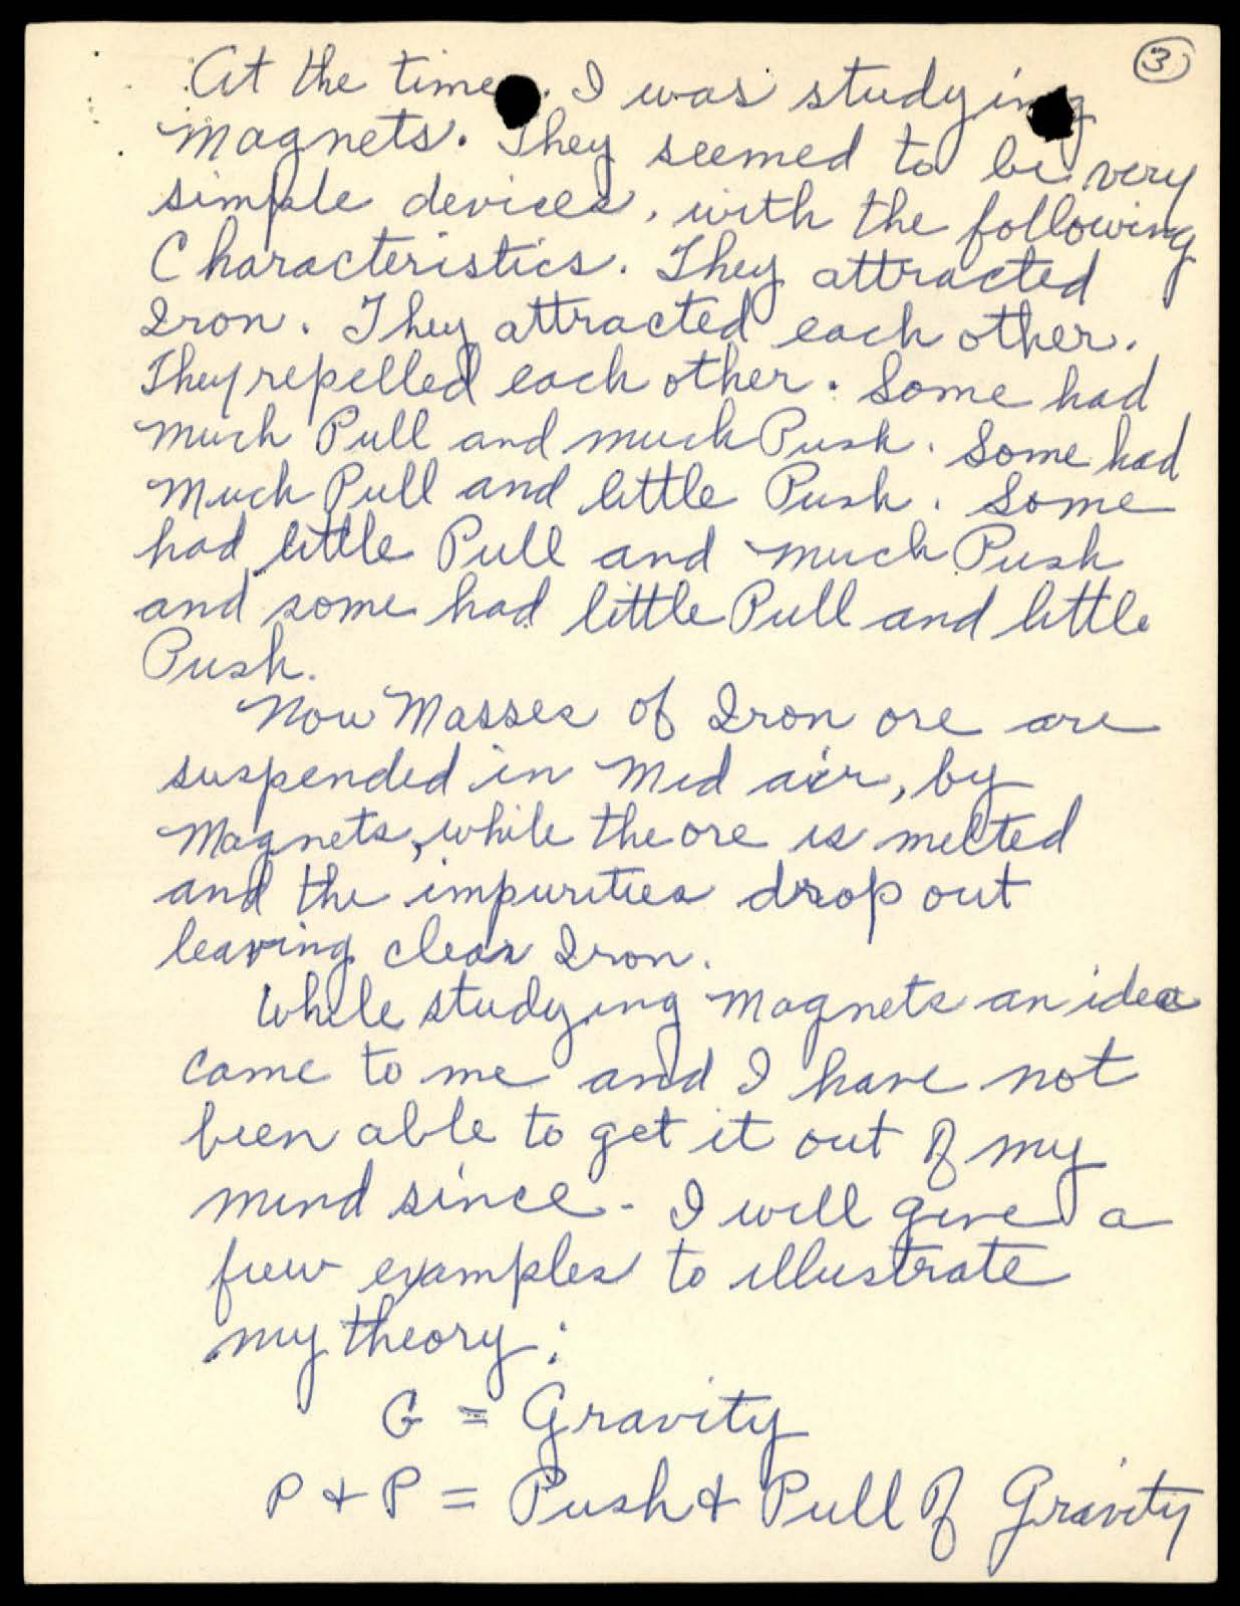 3
At the time. I was studying
magnets. They seemed to be very
simple devices, with the following
Characteristics. They attracted
Iron. They attracted each other.
They repelled each other. Some had
much Pull and much Push. Some had
much Pull and little Push. Some
had little Pull and much Push
and some had little Pull and little
Push.
Now Masses of Iron ore are
suspended in Mid air, by
Magnets, while the ore is melted
and the impurities drop out
leaving clear Iron.
While studying magnets an idea
came to me and I have not
been able to get it out of my
mind since - I will give a
few examples to illustrate
my theory:
G = Gravity
P & P = Push & Pull of Gravity